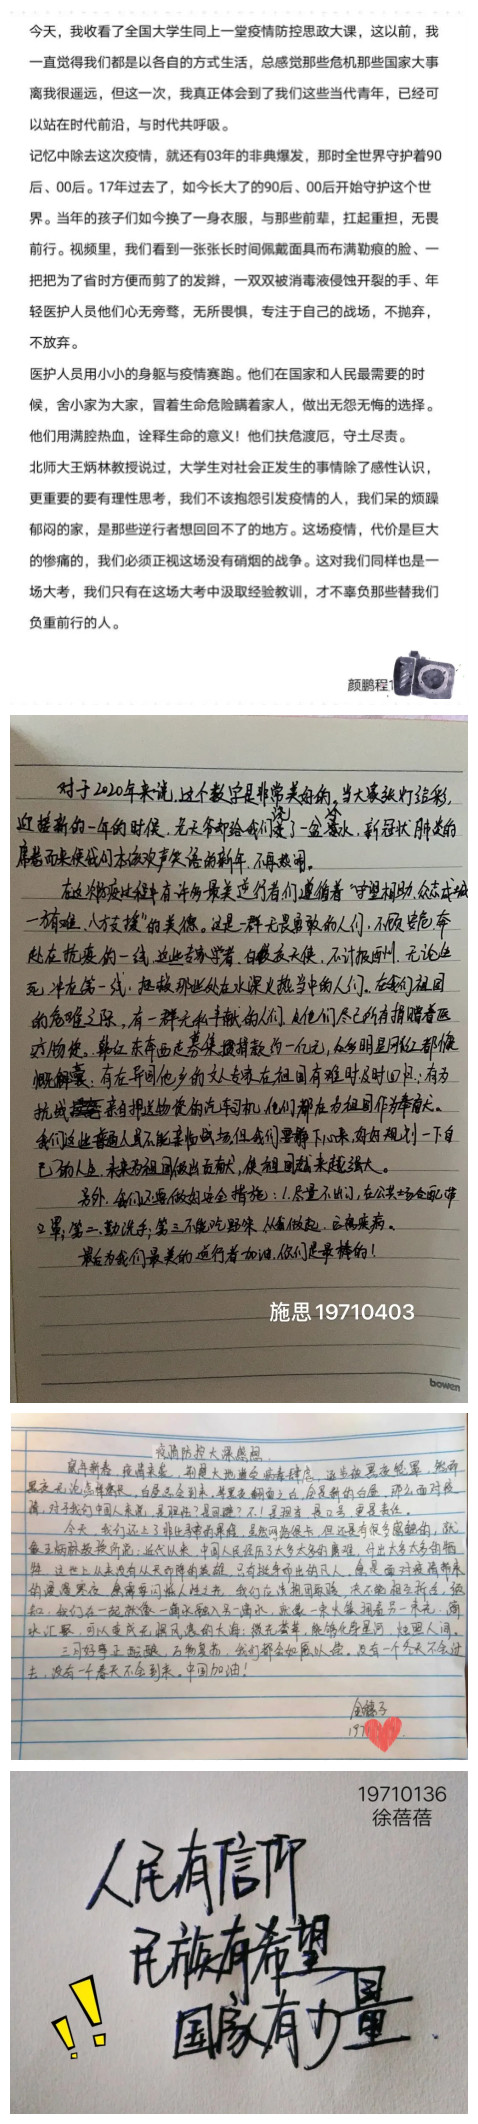 今天，我收看了全国大学生同上一堂疫情防控思政大课，这以前，我
一直觉得我们都是以各自的方式生活，总感觉那些危机那些国家大事
离我很遥远，但这一次，我真正体会到了我们这些当代青年，已经可
以站在时代前沿，与时代共呼吸。
记忆中除去这次疫情，就还有03年的非典爆发，那时全世界守护着90
后、00后。17年过去了，如今长大了的90后、00后开始守护这个世
界。当年的孩子们如今换了一身衣服，与那些前辈，扛起重担，无畏
前行。视频里，我们看到一张张长时间佩戴面具而布满勒痕的脸、一
把把为了省时方便而剪了的发辫，一双双被消毒液侵蚀开裂的手、年
轻医护人员他们心无旁骛，无所畏惧，专注于自己的战场，不抛弃，
不放弃。
医护人员用小小的身躯与疫情赛跑。他们在国家和人民最需要的时
候，舍小家为大家，冒着生命危险瞒着家人，做出无怨无悔的选择。
他们用满腔热血，诠释生命的意义！他们扶危渡厄，守土尽责。
北师大王炳林教授说过，大学生对社会正发生的事情除了感性认识，
更重要的要有理性思考，我们不该抱怨引发疫情的人，我们呆的烦躁
郁闷的家，是那些逆行者想回回不了的地方。这场疫情，代价是巨大
的惨痛的，我们必须正视这场没有硝烟的战争。这对我们同样也是一
场大考，我们只有在这场大考中汲取经验教训，才不辜负那些替我们
负重前行的人。
颜鹏程1
对于2020年来说，这个数字是非常美好的。当大家张灯结彩，
迎接新的一年的时候，老天爷却给我们浇了一盆冷水，新冠状肺炎的
席卷而来使我们本该欢声笑语的新年，不再热闹。
在这次抗疫过程中有许多最美逆行者们遵循着“守望相助，众志成城
一方有难，八方支援”的美德。这是一群无畏勇敢的人们，不顾安危奔
赴在抗疫的一线，这些专家学者，白衣天使，不计报酬，无论生
死，冲在第一线，拯救那些处在水深火热当中的人们。在我们祖国
的危难之际，有一群无私奉献的人们，
疗物资。韩红东奔西走募集援捐款约一亿元，众多明星网红都慷
慨解囊；有在异国他乡的文人专家在祖国有难时及时回归；有为
抗战亲自押送物资的汽车司机，他们都在为祖国作为奉献。
我们这些普通人虽不能亲临战场，但我们要静下心来，好好规划一下自
己的人生，未来为祖国做出贡献，使祖国越来越强大。
另外，我们还要做好安全措施：1.尽量不出门，在公共场合配带
口罩；第二、勤洗手；第三不能吃野味，从我做起，远离疾病。
最后为我们最美的逆行者加油，你们是最棒的！
施思19710403
bowen
疫情防控大课感想
鼠年新春，疫情来袭，荆楚大地遭受病毒肆虐，
今天，我们还上了非比寻常的课程，虽然网络很卡，但还是有很多感触的，就
像王炳林教授所说：近代以来，中国人民经历了太多太多的磨难，付出太多太多的牺
牲，这世上从来没有从天而降的英雄，只有挺身而出的凡人。
汇聚，可以变成无惧风浪的大海；微光荟萃，能够化身星河，灿照人间。
去，没有一个春天不会到来。中国加油！
197
19710136
徐蓓蓓
人民有信仰
民族有希望
国家有力量